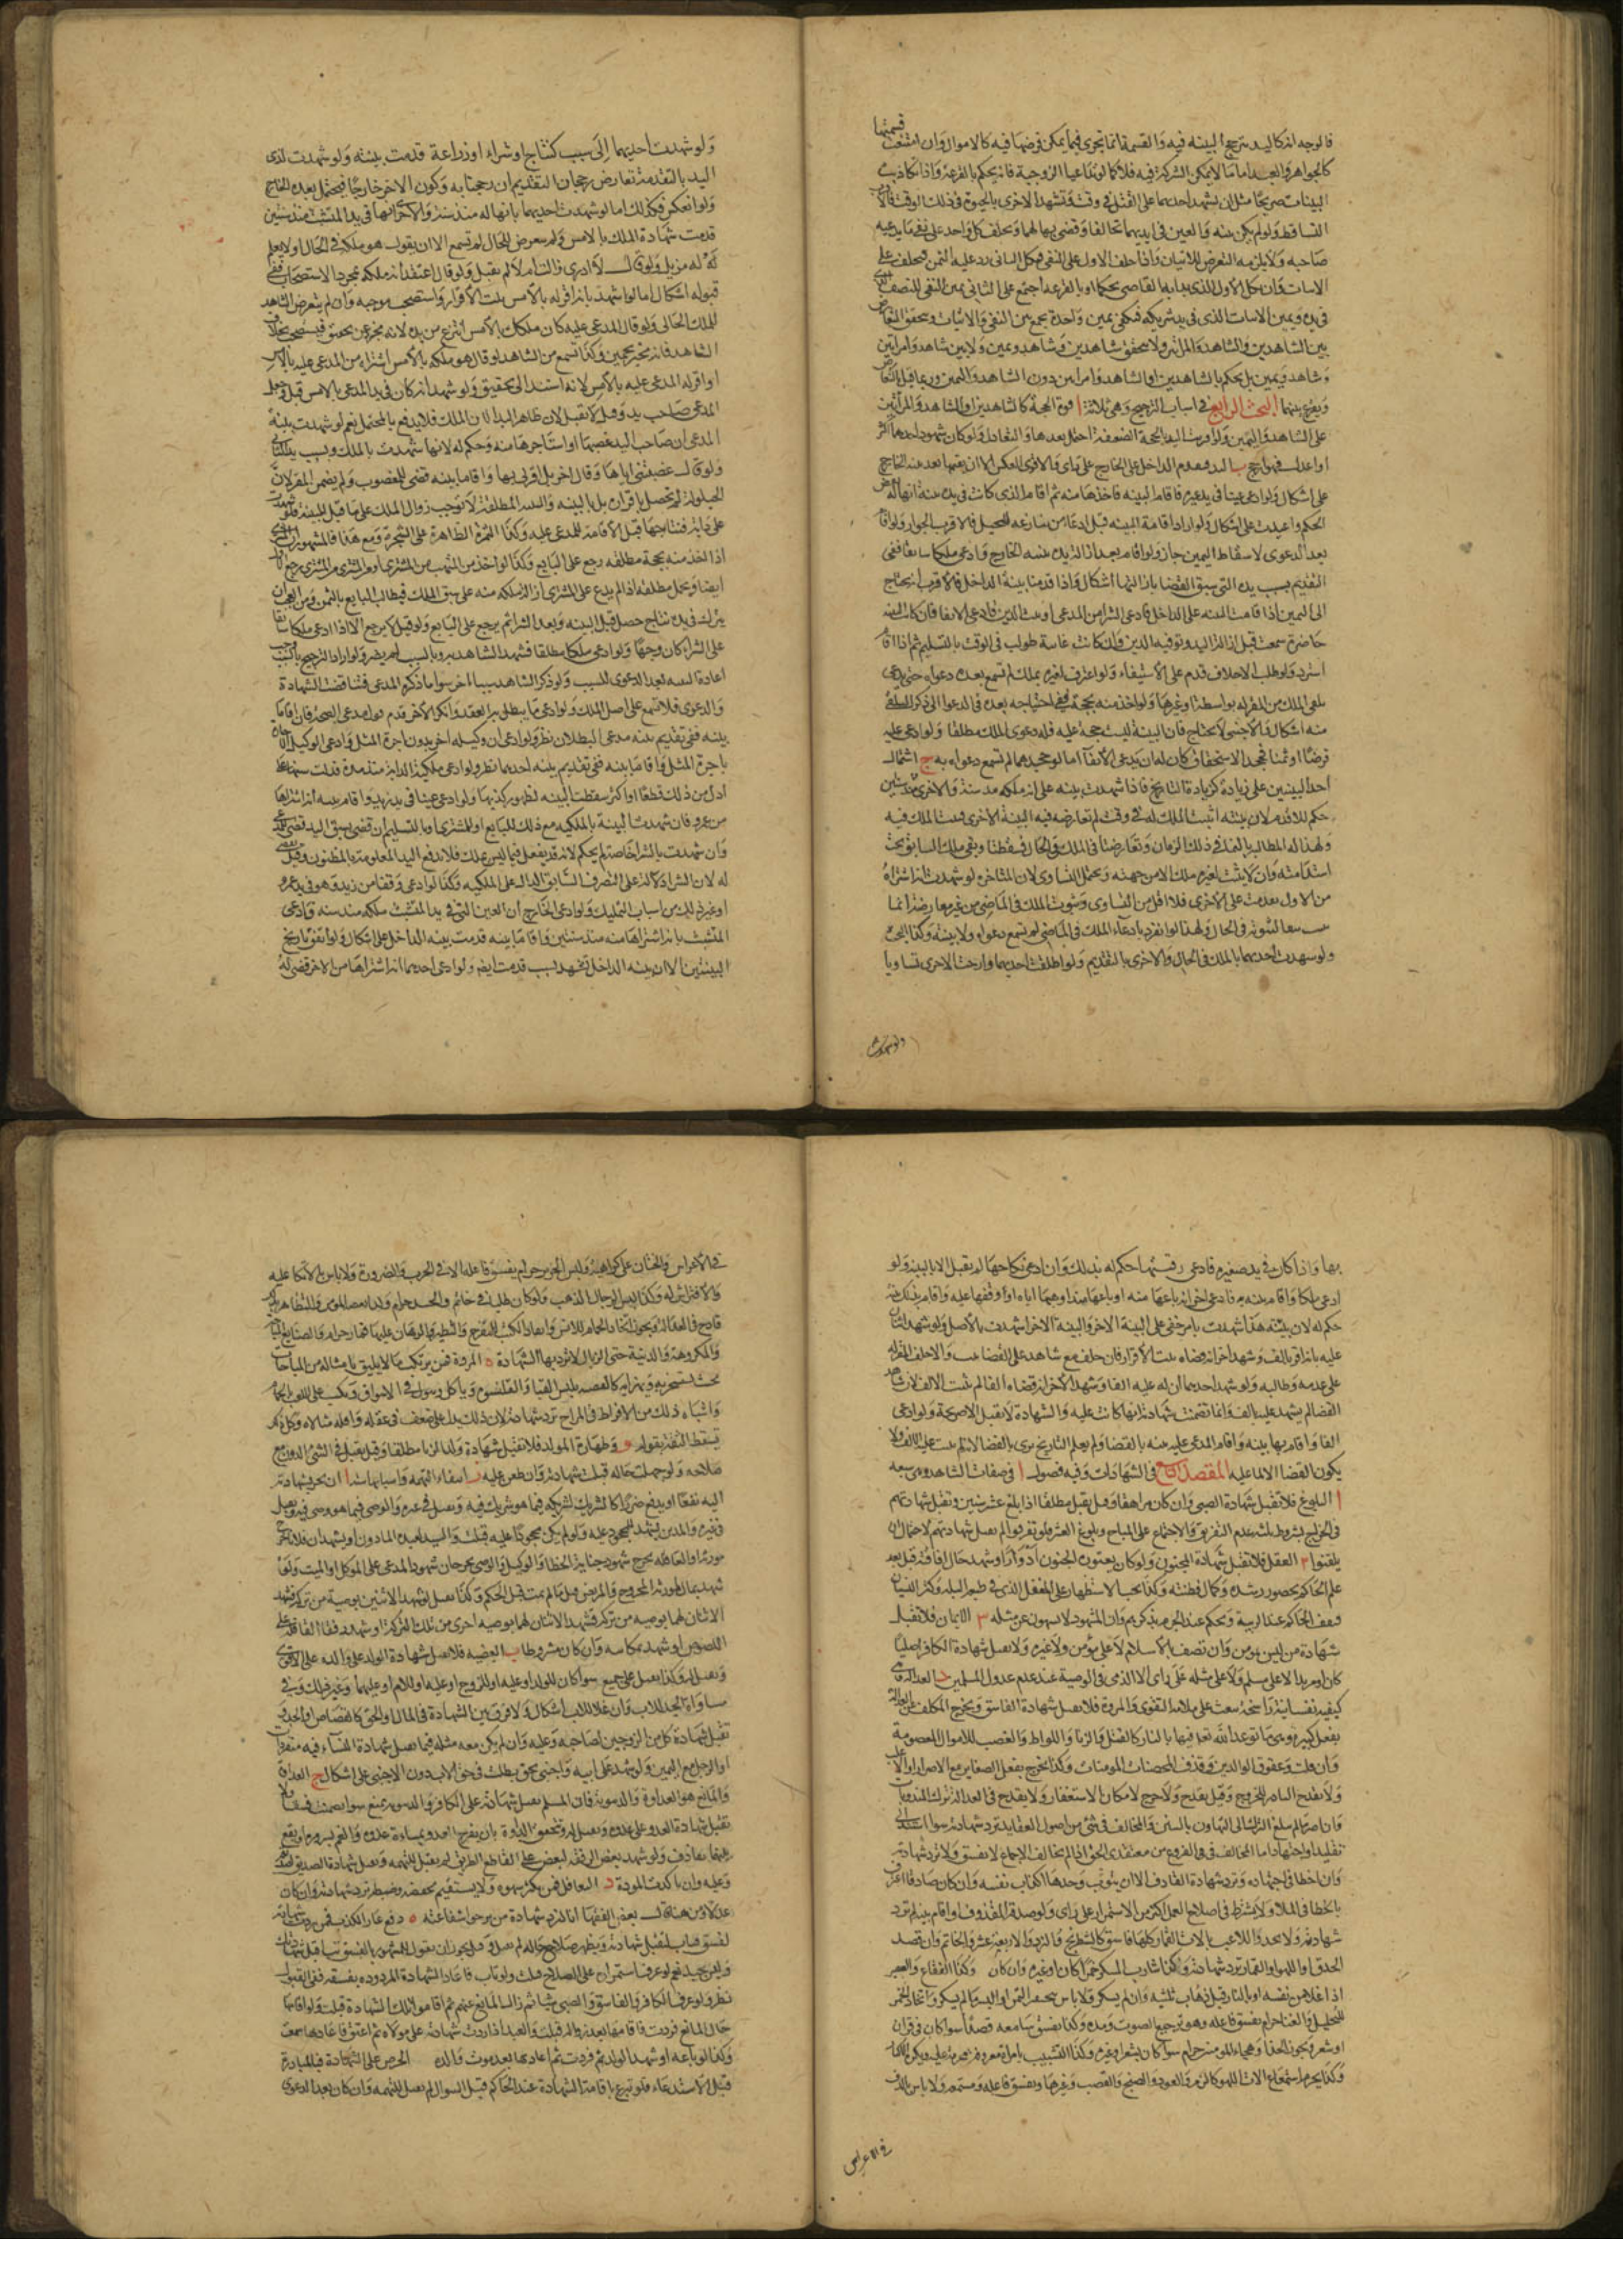 قسمتها
فالوجه انه كاليد ترجح البينه فيه والقسمة انما تجرى فيما يمكن فرضها فيه كالاموال وان امتنعت
كالجواهر والعبد اما ما لا يمكن الشركة فيه فلا كما لو تداعيا الزوجية فانه يحكم بالقرعة واذا تكاذبت
البينات صريحا مثل ان يشهد احدهما على القتل فى وقت وتشهد الاخرى بالحيوة فى ذلك الوقت
التساقط ولو لم يكن بينه والعين فى ايديهما تحالفا وقضى بها لهما ويحلف كل واحد على نفى ما يدعيه
صاحبه ولا يلزمه التعرض للاثبات واذا حلف الاول على النفى فنكل الثانى رد عليه اليمن فيحلف على
الاثبات وان نكل الاول الذى بدا به القاضى تحكما او بالقرعه اجتمع على الثانى يمين النفى للنصف
فى يده ويمين الاثبات الذى فى يد شريكه فيكفى يمين واحدة يجمع بين النفى والاثبات ويتحقق التعارض
بين الشاهدين والشاهد والمراتين ولا يتحقق بين شاهدين وشاهد ويمين ولا بين شاهد وامراتين
وشاهد ويمين بل يحكم بالشاهدين او الشاهد وامراتين دون الشاهد واليمين وربما قيل بالتعارض
ويقرع بينهما البحث الرابع فى اسباب الترجيح وهى ثلاثة ا قوة الحجة كالشاهدين او الشاهد والمراتين
على الشاهد واليمين ولو اقترنت اليد بالحجة الضعيفة احتمل تقديمها والتعادل ولو كان شهود احدهما اكثر
او اعدل فهو ارجح ب اليد فيقدم الداخل على الخارج على راى والاقوى العكس الا ان يقيمها بعد بينه الخارج
على اشكال ولو ادعى عينا فى يد غيره فاقام البينه فاخذها منه ثم اقام الذى كانت فى يده بينة انها له نقض
الحكم واعيدت على اشكال ولو اراد اقامة البينه قبل ادعا من ينازعه للتسجيل فالاقرب الجواز ولو اقام
بعد الدعوى لاسقاط اليمين جاز ولو اقام بعد ازالة يده ببينه الخارج وادعى ملكا سابقا ففى
التقديم بسبب يده التى سبق القضا بازالتها اشكال واذا قدمنا بينة الداخل فالاقرب انه يحتاج
الى اليمين اذا قامت البينه على الداخل فادعى الشرا من المدعى او ثبت الدين فادعى الابفا فان كانت البينه
حاضرة سمعت قبل ازالة اليد وتوفية الدين وان كانت غايبة طولب فى الوقت بالتسليم ثم اذا اقام
استرد ولو طلب الاحلاف قدم على الاستيفاء ولو اعترف لغيره بملك لم تسمع بعده دعواه حتى يدعى
تلقى الملك من المقر له بواسطة او غيرها ولو اخذ منه بحجة ففى احتياجه بعده فى الدعوى الى ذكر التلقى
منه اشكال والاجنبى لا يحتاج فان البينة ليست حجة عليه فله دعوى الملك مطلقا ولو ادعى عليه
قرضا او ثمنا فجحد الاستحقاق كان له ان يدعى الايفآ اما لو جحدهما لم تسمع دعواه به ج اشتمال
احد البينتين على زيادة كزيادة التاريخ فاذا شهدت بينه على انه ملكه منذ سنة والاخرى منذ سنتين
حكم للاقدم لان بينته اثبتت الملك له فى وقت لم تعارضه فيه البينة الاخرى فيثبت الملك فيه
ولهذا له المطالبه بالنما فى ذلك الزمان وتعارضتا فى الملك فى الحال فسقطتا وبقى ملك السابق تجب
استدامته وان لا يثبت لغيره ملك الا من جهته ويحتمل التساوى لان المتاخره لو شهدت انه اشتراه
من الاول لقدمت على الاخرى فلا اقل من التساوى وثبوت الملك فى الماضى من غير معارضة انما
يثبت تبعا لثبوته فى الحال ولهذا لو انفرد بادعاء الملك فى الماضى لم تسمع دعواه ولا بينته وكذا البحث
ولو شهدت احديهما بالملك فى الحال والاخرى بالتقديم ولو اطلقت احديهما وارخت الاخرى تساويا
ولو شهدت
ولو شهدت احديهما الى سبب كنتاج او شراء او زراعة قدمت بينته ولو شهدت لذى
اليد بالتقدمة تعارض رجحان التقديم ان رجحنا به وكون الاخر خارجا فيحتمل بعده الخارج
ولو انعكس فكذلك اما لو شهدت احديهما بانها له منذ سنة والاخرى انها فى يد المتشبث منذ سنتين
قدمت شهادة الملك بالامس ولم يتعرض للحال لم تسمع الا ان يقول هو ملكه فى الحال او لا يعلم
له مزيل ولو قال لا ادرى زال ام لا لم يقبل ولو قال اعتقد انه ملكه بمجرد الاستصحاب ففى
قبوله اشكال اما لو شهد بانه اقر له بالامس ثبت الاقرار واستصحب موجبه وان لم يتعرض الشاهد
للملك الحالى ولو قال المدعى عليه كان ملكك بالامس انتزع من يده لانه مخبر عن تحقيق فيستصحب بخلاف
الشاهد فانه يخبر عن تخمين وكذا تسمع من الشاهد لو قال هو ملكه بالامس اشتراه من المدعى عليه بالامس
او اقر له المدعى عليه بالامس لانه استند الى تحقيق ولو شهد انه كان فى يد المدعى بالامس قبل وجعل
المدعى صاحب يد وقيل لا يقبل لان ظاهر اليد الان الملك فلا يدفع بالمحتمل نعم لو شهدت بينة
المدعى ان صاحب اليد غصبها او استاجرها منه وحكم له لانها شهدت بالملك وسبب يد الثانى
ولو قال غصبتنى اياها وقال اخر بل اقر لى بها واقاما بينه قضى للمغصوب ولم يضمن المقر لان
الحيلولة لم تحصل باقراره بل بالبينه والبينه المطلقة لا توجب زوال الملك على ما قبل البينة فلو شهدت
على دابة فنتاجها قبل الاقامة للمدعى عليه وكذا الثمرة الظاهرة على الشجرة ومع هذا فالمشهور ان المشترى
اذا اخذ منه بحجة مطلقه رجع على البايع وكذا لو اخذ من المتهب من المشترى او من المشترى من المشترى رجع الاول
ايضا ويحمل مطلقه اذا لم يدع على المشترى ازالة ملكه منه على سبق الملك فيطالب البايع بالثمن ومن العجب ان
يترك فى يده نتاج حصل قبل البينه وبعد الشرا ثم يرجع على البايع ولو قيل لا يرجع الا اذا ادعى ملكا سابقا
على الشراء كان وجها ولو ادعى ملكا مطلقا فشهد الشاهد به وبالسبب لم يضر ولو اراد الترجيح بالسبب وجب
اعادة البينه بعد الدعوى للسبب ولو ذكر الشاهد سببا اخر سوا ما ذكره المدعى فتناقضت الشهادة
والدعوى فلا تسمع على اصل الملك ولو ادعى ما يبطل به العقد وانكر الاخر قدم قول مدعى الصحة فان اقاما
بينه ففى تقديم بينه مدعى البطلان نظر ولو ادعى ان وكيله اجر بدون اجرة المثل وادعى الوكيل الاجارة
باجرة المثل واقاما بينه ففى تقديم بينه احدهما نظر ولو ادعى ملكية الدابة منذ مدة فدلت سنها على
اقل من ذلك قطعا او اكثر سقطت البينه لظهور كذبها ولو ادعى عينا فى يد زيد واقام بينه انه اشتراها
من عمرو فان شهدت البينة بالملكيه مع ذلك للبايع او للمشترى او بالتسليم ان قضى بسبق اليد قضى للمدعى
وان شهدت بالشرا خاصة لم يحكم لانه قد يفعل فيما ليس بملك فلا تدفع اليد المعلومة بالمظنون وقيل يقضى
له لان الشرا دلالة على التصرف السابق الدال على الملكيه وكذا لو ادعى وقفا من زيد وهو فى يد عمرو
او غير ذلك من اسباب التمليك ولو ادعى الخارج ان العين التى فى يد المتشبث ملكه منذ سنه وادعى
المتشبث بانه اشتراها منه منذ سنتين واقاما بينه قدمت بينه الداخل على اشكال ولو اتفق تاريخ
البينتين الا ان بينه الداخل تشهد بسبب قدمت ايضا ولو ادعى احدهما انه اشتراها من الاخر قضى له
بها واذا كان فى يد صغيره فادعى رقيتها حكم له بذلك وان ادعى نكاحها لم يقبل الا بالبينه ولو
ادعى ملكا واقام بينه به فادعى اخر انه باعها منه او باعها منه او وهبها اياه او اوقفها عليه واقام بذلك بينة
حكم له لان بينته هذا شهدت بامر خفى على البينة الاخر والبينة الاخرا شهدت بالاصل ولو شهد اثنان
عليه بانه اقر بالف وشهد اخر انه قضاه ثبت الاقرار فان حلف مع شاهده على القضا ثبت والا حلف المقر له
على عدمه وطالبه ولو شهد احدهما ان له عليه الفا وشهد الاخر انه قضاه الفا لم يثبت الالف لان شاهد
القضا لم يشهد عليه بالف وانما تضمنت شهادته انها كانت عليه والشهادة لا تقبل الا صريحة ولو ادعى
الفا واقام بها بينه واقام المدعى عليه بينه بالقضا ولم يعلم التاريخ برى بالقضا لانه لم يثبت عليه الا الف ولا
يكون القضا الا لما عليه المقصد التاسع فى الشهادات وفيه فصول ا فى صفات الشاهد وهى سبعه
ا البلوغ فلا تقبل شهادة الصبى وان كان مراهقا وقيل يقبل مطلقا اذا بلغ عشر سنين وتقبل شهادتهم
فى الجراح بشروط ثلثه عدم التفريق والاجتماع على المباح وبلوغ العشر فلو تفرقوا لم تقبل شهادتهم لاحتمال ان
يلقنوا ٢ العقل فلا تقبل شهادة المجنون ولو كان يعتوره الجنون ادوارا وشهد حال افاقته قبل بعد
علم الحاكم بحضور رشده وكمال فطنته وكذا يجب الاستظهار على المغفل الذى فى طبعه البله وكثر النسيان
فيقف الحاكم عند الريبة ويحكم عند الجزم بذكره وان المشهود لا يسهو عن مثله ٣ الايمان فلا تقبل
شهادة من ليس بمومن وان اتصف بالاسلام لا على مؤمن ولا غيره ولا تقبل شهادة الكافر اصليا
كان او مرتدا لا على مسلم ولا على مثله على راى الا الذمى فى الوصية عند عدم عدول المسلمين د العدالة وهى
كيفيه نفسانية راسخة تبعث على ملازمة التقوى والمروة فلا تقبل شهادة الفاسق ويخرج المكلف عن العدالة
بفعل كبيره وهى ما توعد الله تعالى فيها بالنار كالقتل والزنا واللواط والغصب للاموال المعصومة
وان قلت وعقوق الوالدين وقذف المحصنات المومنات وكذا يخرج بفعل الصغاير مع الاصرار او الاغلب
ولا تقدح النادر للحرج وقيل يقدح ولا حرج لامكان الاستغفار ولا يقدح فى العدالة ترك المندوبات
وان اصر ما لم يبلغ الترك الى التهاون بالسنن والمخالف فى شئ من اصول العقايد ترد شهادته سوا استند الى
تقليد او اجتهاد اما المخالف فى الفروع من معتقدى الحق اذا لم يخالف الاجماع لا يفسق ولا ترد شهادته
وان اخطا فى اجتهاده وترد شهادة القاذف الا ان يتوب وحدها اكذاب نفسه وان كان صادقا اعترف
بالخطا فى الملاء ولا يشترط فى اصلاح العمل اكثر من الاستمرار على راى ولو صدقه المقذوف او اقام بينه لم ترد
شهادته ولا يحد واللاعب بالات القمار كلها فاسق كالشطرنج والنرد والاربعة عشر والخاتم وان قصد
الحذق او اللهو او القمار ترد شهادته وكذا شارب المسكر خمرا كان او غيره وان كان وكذا الفقاع والعصير
اذا غلا من نفسه او بالنار قبل ذهاب ثلثيه وان لم يسكر ولا باس بمتخذ التمر او البسر ما لم يسكر واتخاذ الخمر
للتخليل والغنا حرام يفسق فاعله وهو ترجيع الصوت ومده وكذا يفسق سامعه قصدا سوا كان فى قران
او شعر ويجوز الحدا وهجاء المومنين حرام سوا كان بشعر او غيره وكذا التشبيب بامراة معروفة محرمة عليه ويكره
وكذا يحرم استماع الات اللهو كالزمر والعود والصنج والقصب وغيرها ويفسق فاعله ومستمعه ولا باس بالدف
فى الاعراس
فى الاعراس والختان على كراهية ولبس الحرير حرام يفسق فاعله الا فى الحرب والضرورة ولا باس بالاتكا عليه
والافتراش له وكذا لبس الرجال الذهب ولو كان طليا فى خاتم والحسد حرام وكذا بغض المومن والتظاهر بذلك
قادح فى العدالة ويجوز اتخاذ الحمام للانس وانفاذ الكتب للتفرج والتطير والرهان عليها قمار حرام والصنايع المباحة
والمكروهة والدنية حتى الزبال لا ترد بها الشهادة ه المروة فمن يرتكب ما لا يليق بامثاله من المباحات
بحيث يسخر به ويهزا به كالفقيه يلبس القبا والقلنسوه وياكل ويبول فى الاسواق ويكب على اللعب بالحمام
واشباه ذلك من الافراط فى المزاح ترد شهادته لان ذلك يدل على ضعف فى عقله وقلة مبالاة وكل ذلك
يسقط الثقة بقوله و طهارة المولد فلا تقبل شهادة ولد الزنا مطلقا وقيل يقبل فى الشئ الدون مع
صلاحه ولو جهلت حاله قبلت شهادته وان طعن عليه ز انتفاء التهمه واسبابها ستة ا ان يجر بشهادته
اليه نفعا او يدفع ضررا كالشريك لشريكه فيما هو شريك فيه وتقبل فى غيره والوصى فيما هو وصى فيه وتقبل
فى غيره والمدين يشهد للمحجور عليه ولو لم يكن محجورا عليه قبلت والسيد لعبده الماذون او يشهدان فلانا جرح
مورثه او العاقله يجرح شهود جناية الخطا والوكيل والوصى يجرحان شهود المدعى على الموكل او الميت ولو
شهد بمال لمورثه المجروح والمريض قبل ما لم يمت قبل الحكم وكذا تقبل لو شهد الاثنين بوصية من تركة فشهد
الاثنان لهما بوصيه من تركة فشهد الاثنان لهما بوصيه اخرى من تلك التركة او شهد رفقا القافلة على
اللصوص او شهد لمكاتبه وان كان مشروطا ب البعضيه فلا تقبل شهادة الولد على والده على الاقوى
وتقبل له وكذا تقبل على جميع سوا كان للولد او عليه او للزوج او عليه او للام او عليها وغير ذلك وفى
مساواة الجد للاب وان علا للاب اشكال ولا فرق بين الشهادة فى المال او الحق كالقصاص او الحد و
تقبل شهادة كل من الزوجين لصاحبه وعليه وان لم يكن معه مثله فيما تقبل شهادة النساء فيه منفردات
او الرجل مع اليمين ولو شهد على ابيه واجنبى بحق بطلت فى حق الاب دون الاجنبى على اشكال ج العداوة
والمانع هو العداوة والدنيوية فان المسلم تقبل شهادته على الكافر والدنيويه تمنع سوا تضمنت فسقا او لا
تقبل شهادة العدو على عدوه وتقبل له وتتحقق العداوة بان يفرح احدهما بمساءة عدوه والغم بسروره او يقع
بينهما تقاذف ولو شهد بعض الرفقه لبعض على القاطع الطريق لم يقبل للتهمه وتقبل شهادة الصديق لصديقه
وعليه وان تاكدت المودة د التغافل فمن يكثر سهوه ولا يستقيم تحفظه وضبطه ترد شهادته وان كان
عدلا ومن هنا قال بعض الفقها انا لنرد شهادة من نرجو شفاعته ه دفع عار الكذب فمن ردت شهادته
لفسق فتاب لتقبل شهادته ويظهر صلاح حاله لم يقبل وقيل يجوز ان يقول للمشهور بالفسق تب اقبل شهادتك
وليس بجيد نعم لو عرف استمراره على الصلاح قبلت ولو تاب فاعاد الشهادة المردوده بفسقه ففى القبول
نظر ولو عرف الكافر والفاسق والصبى شيا ثم زال المانع عنهم ثم اقاموا تلك الشهادة قبلت ولو اقامها
حال المانع فردت فاقامها بعد زواله قبلت والعبد اذا ردت شهادته على مولاه ثم اعتق فاعادها سمعت
وكذا لو باعه او شهد الولد ثم فردت ثم اعادها بعد موت والده الحرص على الشهادة فبالمبادرة
قبل الاستدعاء فلو تبرع باقامة الشهادة عند الحاكم قبل السوال لم تقبل للتهمه وان كان بعد الدعوى